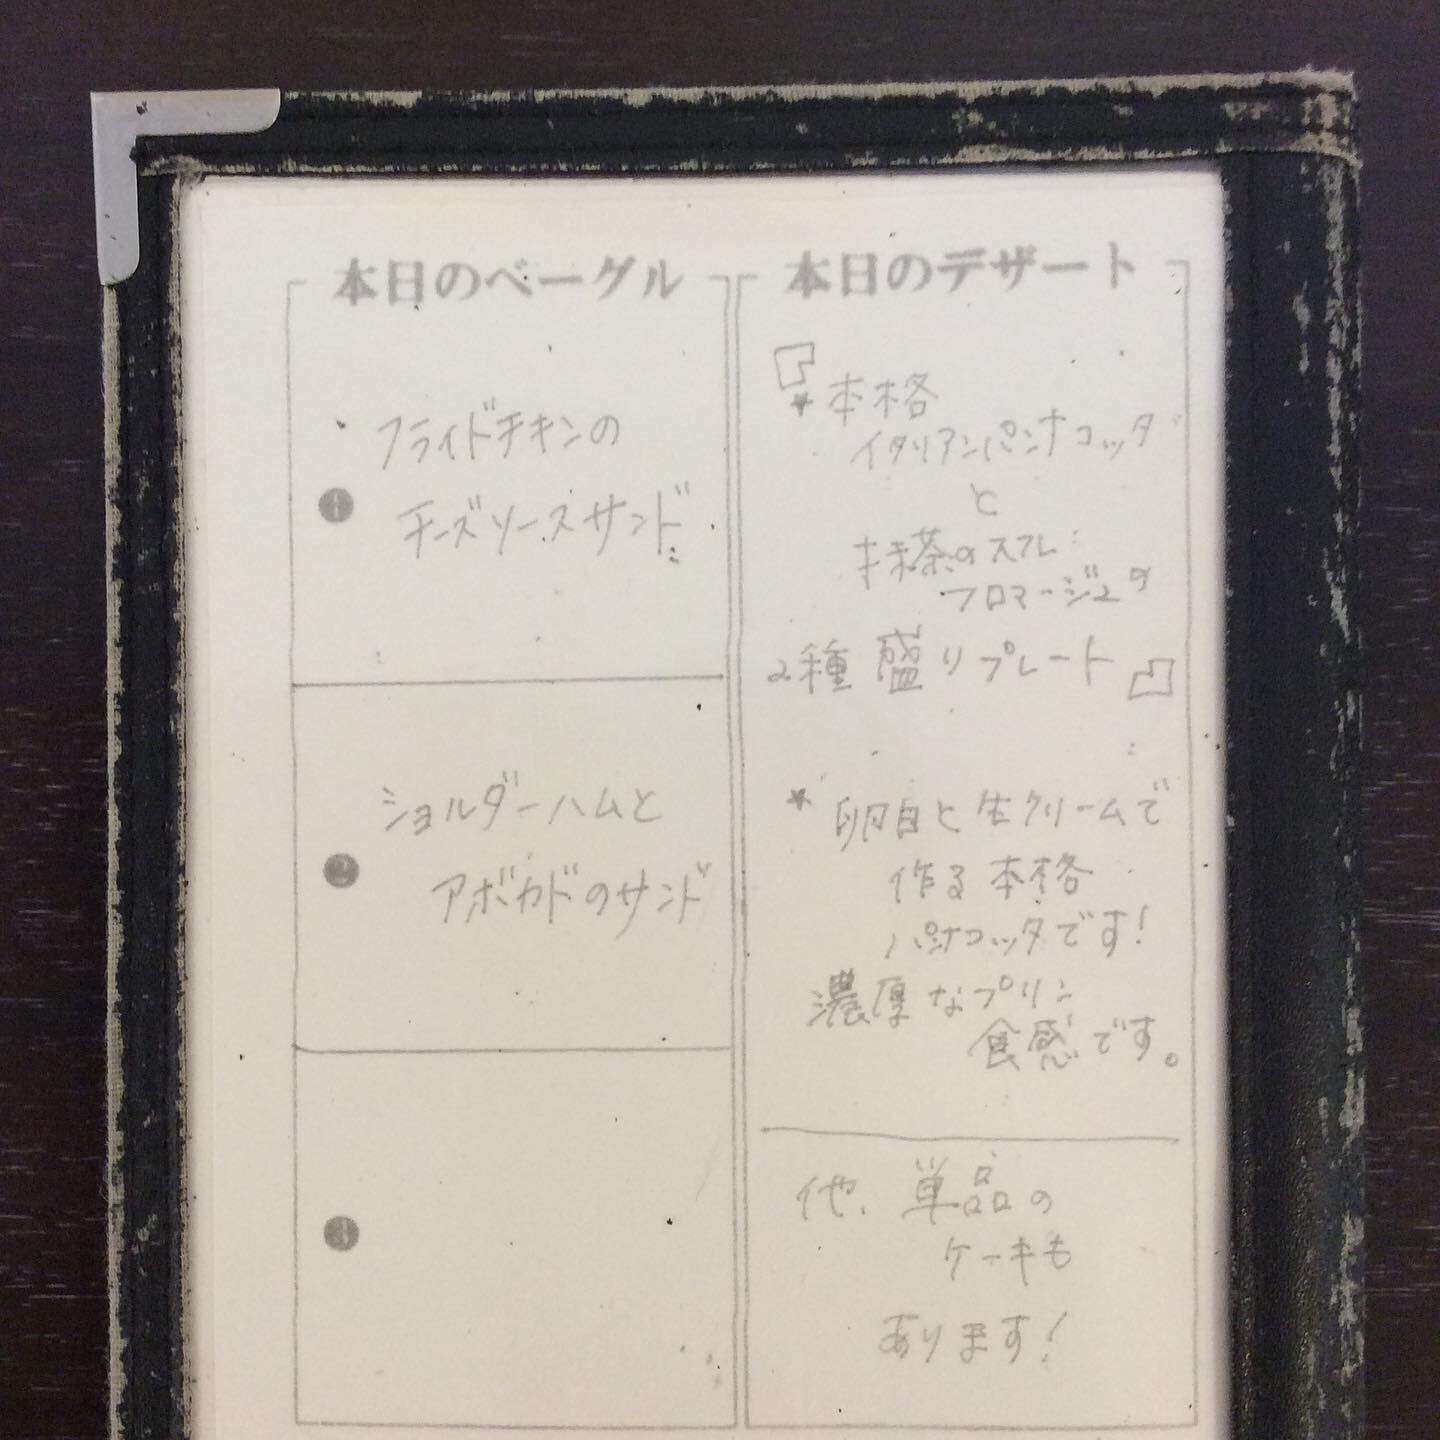 本日のベーグル
❶
フライドチキンの
チーズソースサンド
❷
ショルダーハムと
アボカドのサンド
❸
本日のデザート
『*本格
イタリアンパンナコッタ
と
抹茶のスフレ
フロマージュの
2種盛りプレート』
*卵白と生クリームで
作る本格
パンナコッタです!
濃厚なプリン
食感です。
他、単品の
ケーキも
あります!